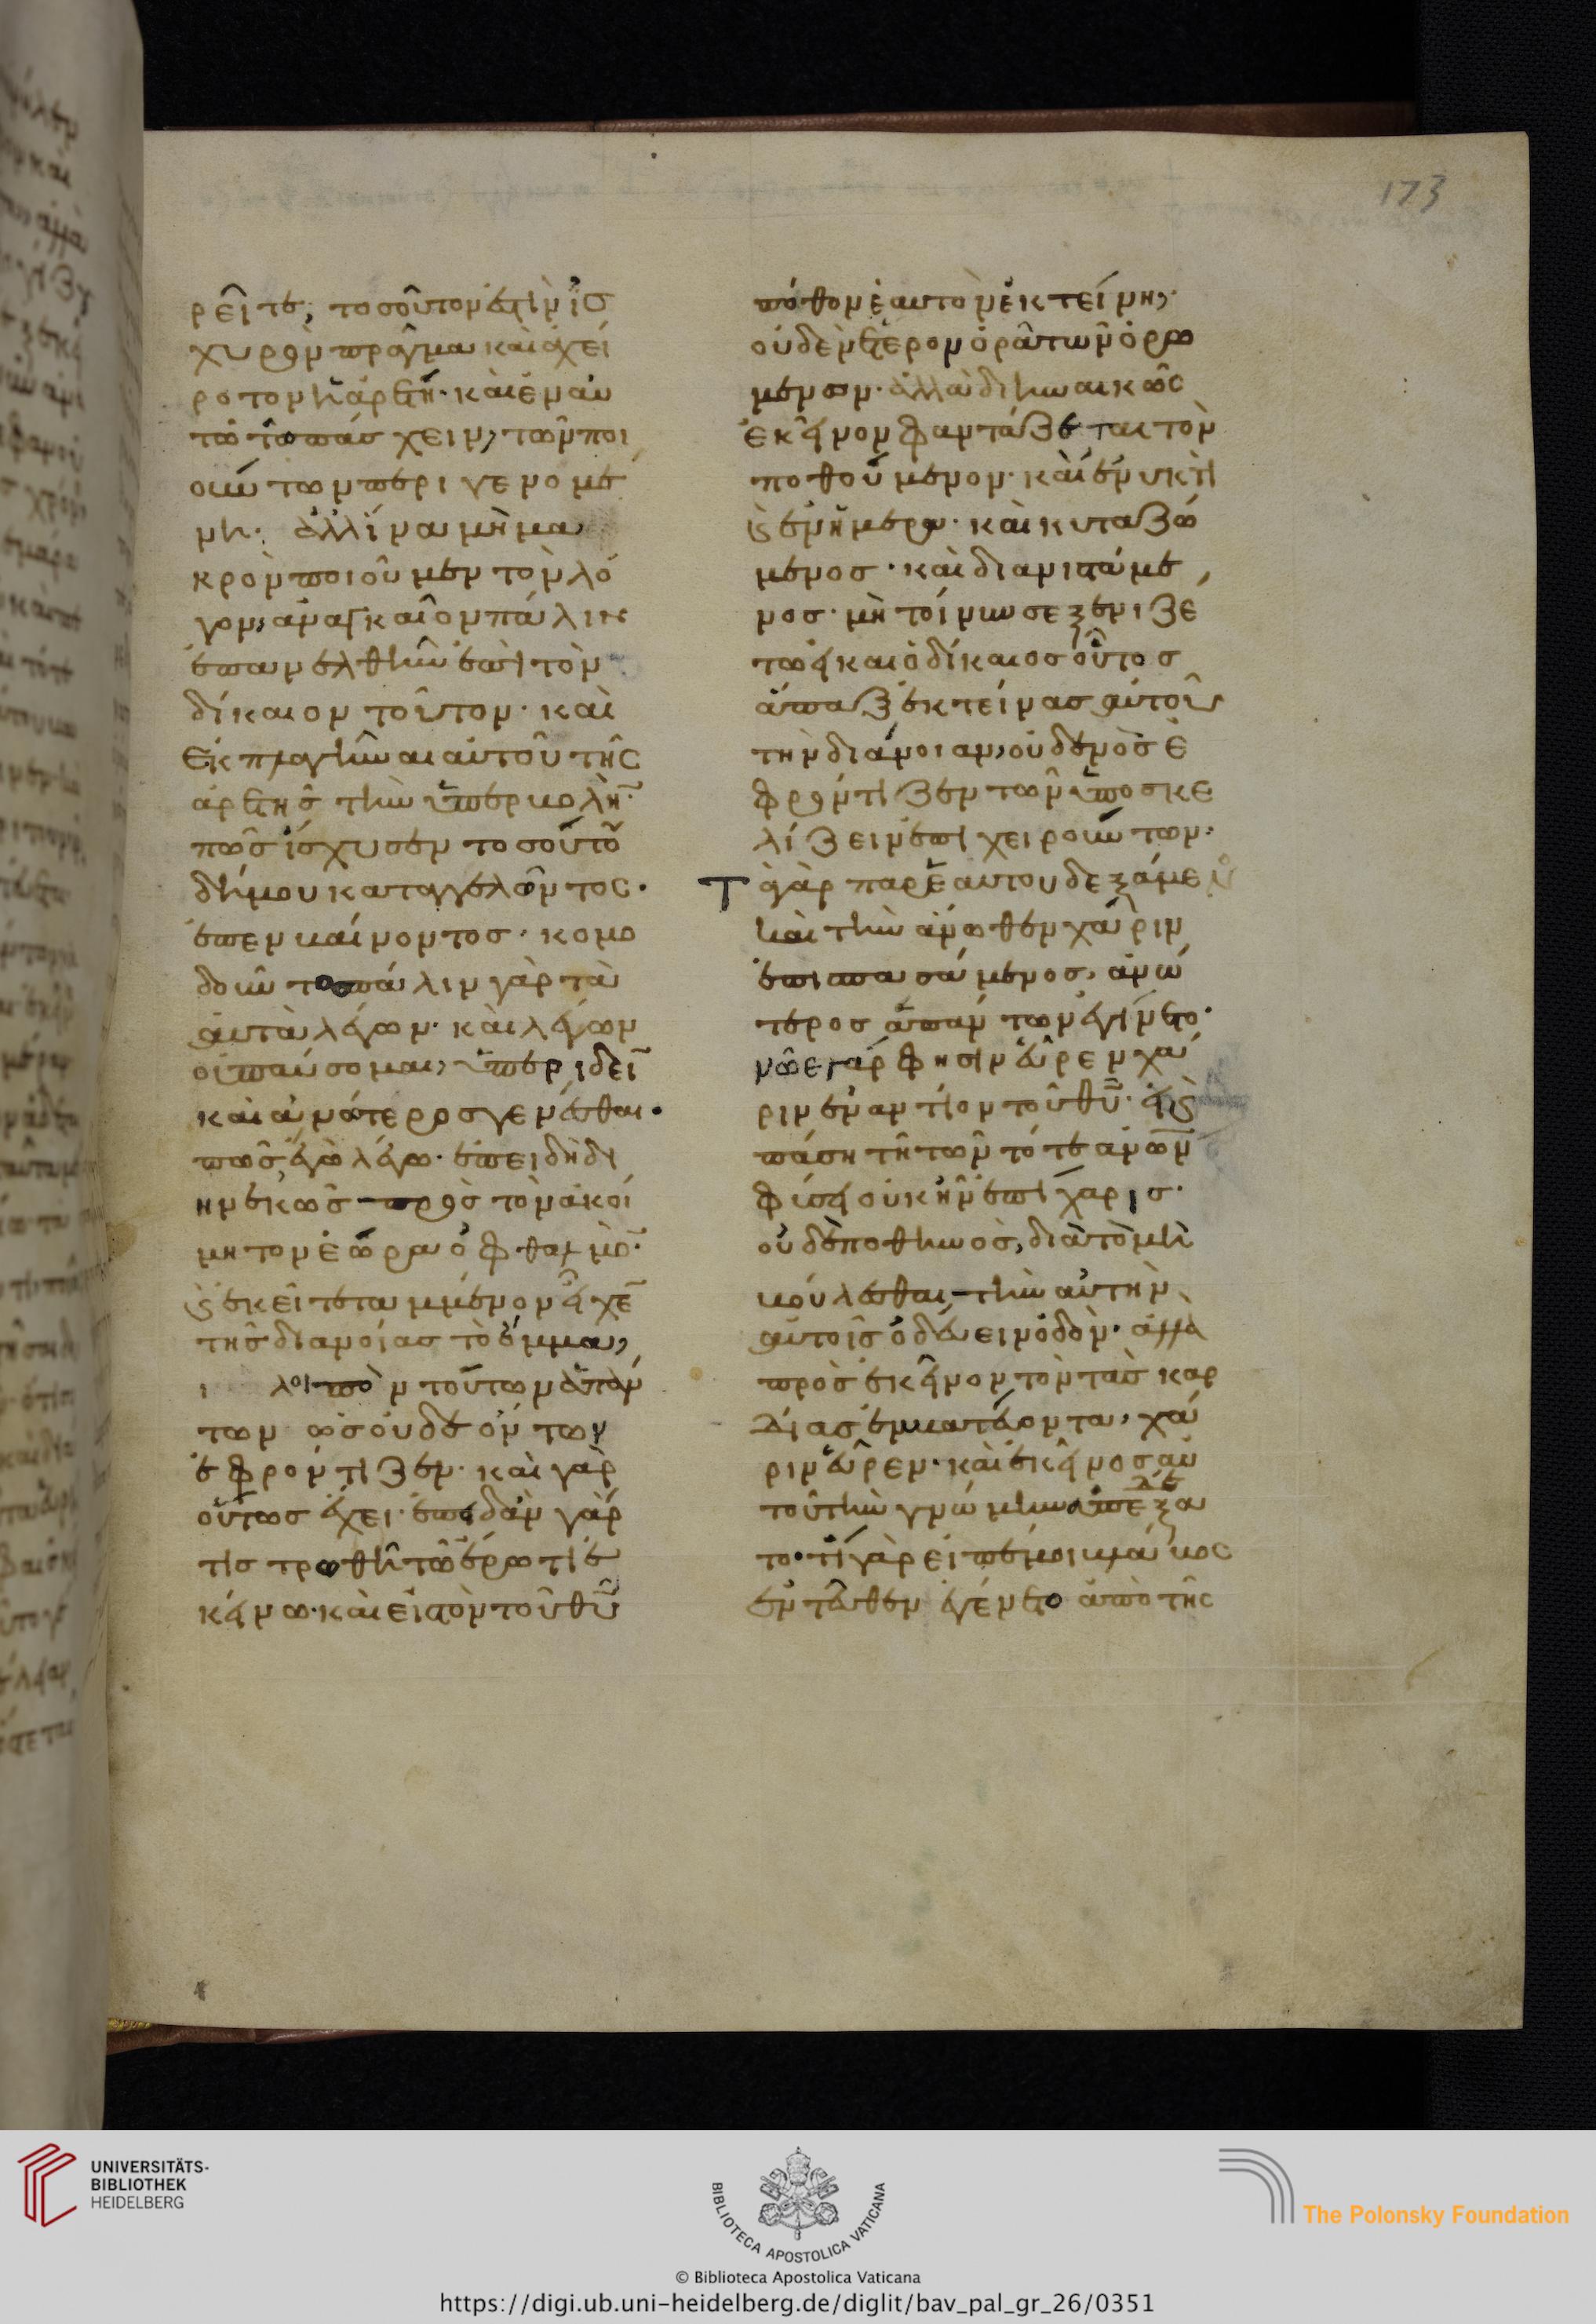 173
ρεῖτε; τοσοῦτον ἐστὶν ἰσ
χυρὸν πρᾶγμα καὶ ἀχεί
ρωτον ἡ ἀρετή· καὶ ἐν αυ
τῶ τῶ πάσχειν, τῶν ποι
ούντων περιγενομέ
νη· ἀλλ' ἵνα μὴ μα
κρὸν ποιοῦμεν τὸν λό
γον, ἀναγκαῖον πάλιν
ἐπανελθεῖν ἐπὶ τὸν
δίκαιον τοῦτον· καὶ
ἐκπλαγῆναι αὐτοῦ τῆς
ἀρετῆς τὴν ὑπερβολήν·
πῶς ἴσχυσεν τοσούτου
δήμου καταγελῶντος·
ἐπεμβαίνοντος· κομω
δοῦντος πάλιν γὰρ τὰ
αὐτὰ λέγων· καὶ λέγων
οὐ παύσομαι, ὑπεριδεῖν
καὶ ἀνώτερος γενέσθαι·
πῶς ἐγὼ λέγω· ἐπειδὴ δι
ηνεκῶς πρὸς τὸν ἀκοί
μητον ἑώρα ὀφθαλμόν·
κἀκεῖ τεταμμένον εἶχεν
τῆς διανοίας τὸ ὄμμα,
λοιπὸν τούτων ἁπάν
των ὡς οὐδὲ ὄντων
ἐφρόντιζεν· καὶ γὰρ
οὕτως ἔχει· ἐπειδὰν γάρ
τις τρωθῆ τῶ ἔρωτι ἐ
κείνω· καὶ εἰς τὸν τοῦ θῦ
πόθον ἑαυτὸν ἐκτείνη,
οὐδὲν ἕτερον ὁρᾶ τῶν ὁρω
μένων· ἀλλὰ διηνεκῶς
ἐκεῖνον φαντάζεται τὸν
ποθούμενον· καὶ ἐν νυκτὶ
καὶ ἐν ἡμέρα· καὶ κοιταζό
μενος· καὶ διανιστάμε
νος· μὴ τοίνυν σε ξενιζέ
τω εἰ καὶ ὁ δίκαιος οὗτος
ἅπαξ ἐκτείνας αὐτοῦ
τὴν διάνοιαν, οὐδενὸς ἐ
φρόντιζεν τῶν ὑποσκε
λίζειν ἐπιχειρούντων·
Τὰ γὰρ παρ' ἑαυτοῦ δεξάμενος
καὶ τὴν ἄνωθεν χάριν
ἐπισπασάμενος, ἀνώ
τερος ἁπάντων ἐγίνετο·
νῶε γάρ φησιν εὗρεν χά
ριν ἐναντίον τοῦ θῦ· εἰ καὶ
πάση τῆ τῶν τότε ἀνων
φύσει οὐκ ἦν ἐπίχαρις·
οὐδὲ ποθεινὸς, διὰ τὸ μὴ
βούλεσθαι τὴν αὐτὴν
αὐτοῖς ὁδεύειν ὁδόν· ἀλλὰ
πρὸς ἐκεῖνον τὸν τὰς καρ
δίας ἐμβατεύοντα, χά
ριν εὗρεν· καὶ ἐκεῖνος αὐ
τοῦ τὴν γνώμην ἀπεδέξα
το· τί γὰρ εἰπέ μοι βλάβος
ἐντεῦθεν ἐγένετο ἀπὸ τῆς
UNIVERSITÄTS-
BIBLIOTHEK
HEIDELBERG
BIBLIOTECA APOSTOLICA VATICANA
The Polonsky Foundation
© Biblioteca Apostolica Vaticana
https://digi.ub.uni-heidelberg.de/diglit/bav_pal_gr_26/0351